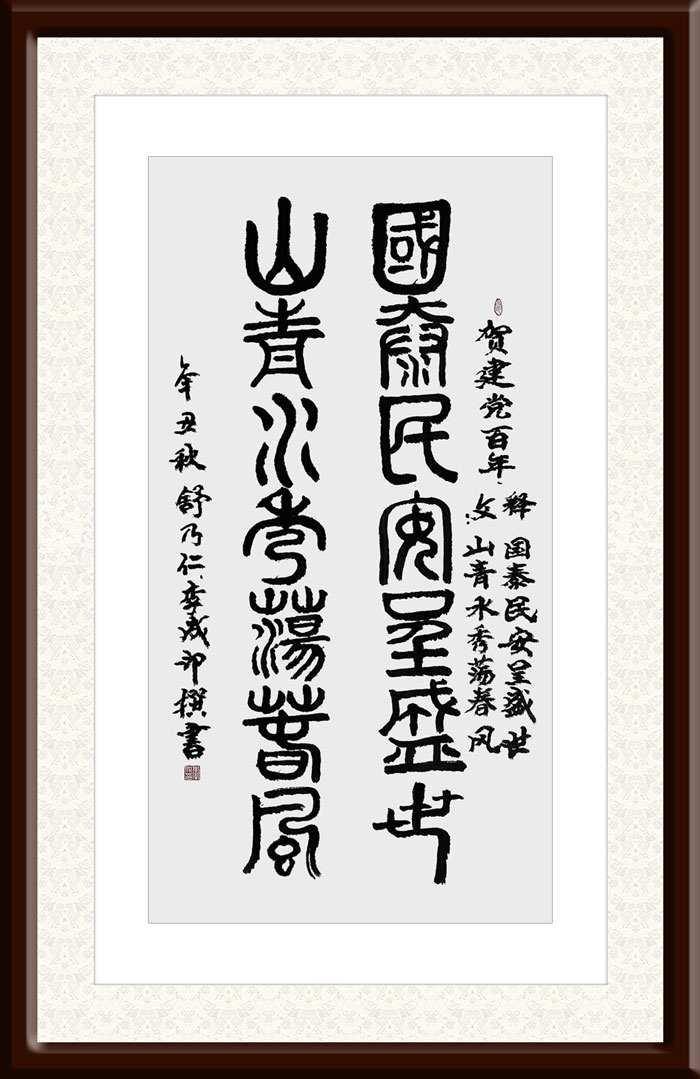 贺建党百年
释文:
国泰民安呈盛世
山青水秀荡春风
國泰民安呈盛世
山青水秀蕩春風
辛丑秋 舒乃仁、李成印撰書